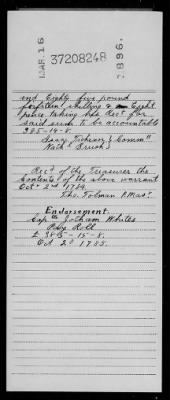 MAR. 16
37208248
1896.
and Eighty five pound
fourteen shilling & Eight
pence taking his Rect for
said sum to be accountable
385-14-8.
Comm
Nath
Rect of the Treasurer the
Contents of the above warrant
Oct 2nd 1784.
Tho. Tolman P.Mas.
Endorsement.
Capt Jotham Whites
Pay Roll
£ 385-15-8.
Oct. 20 1785.